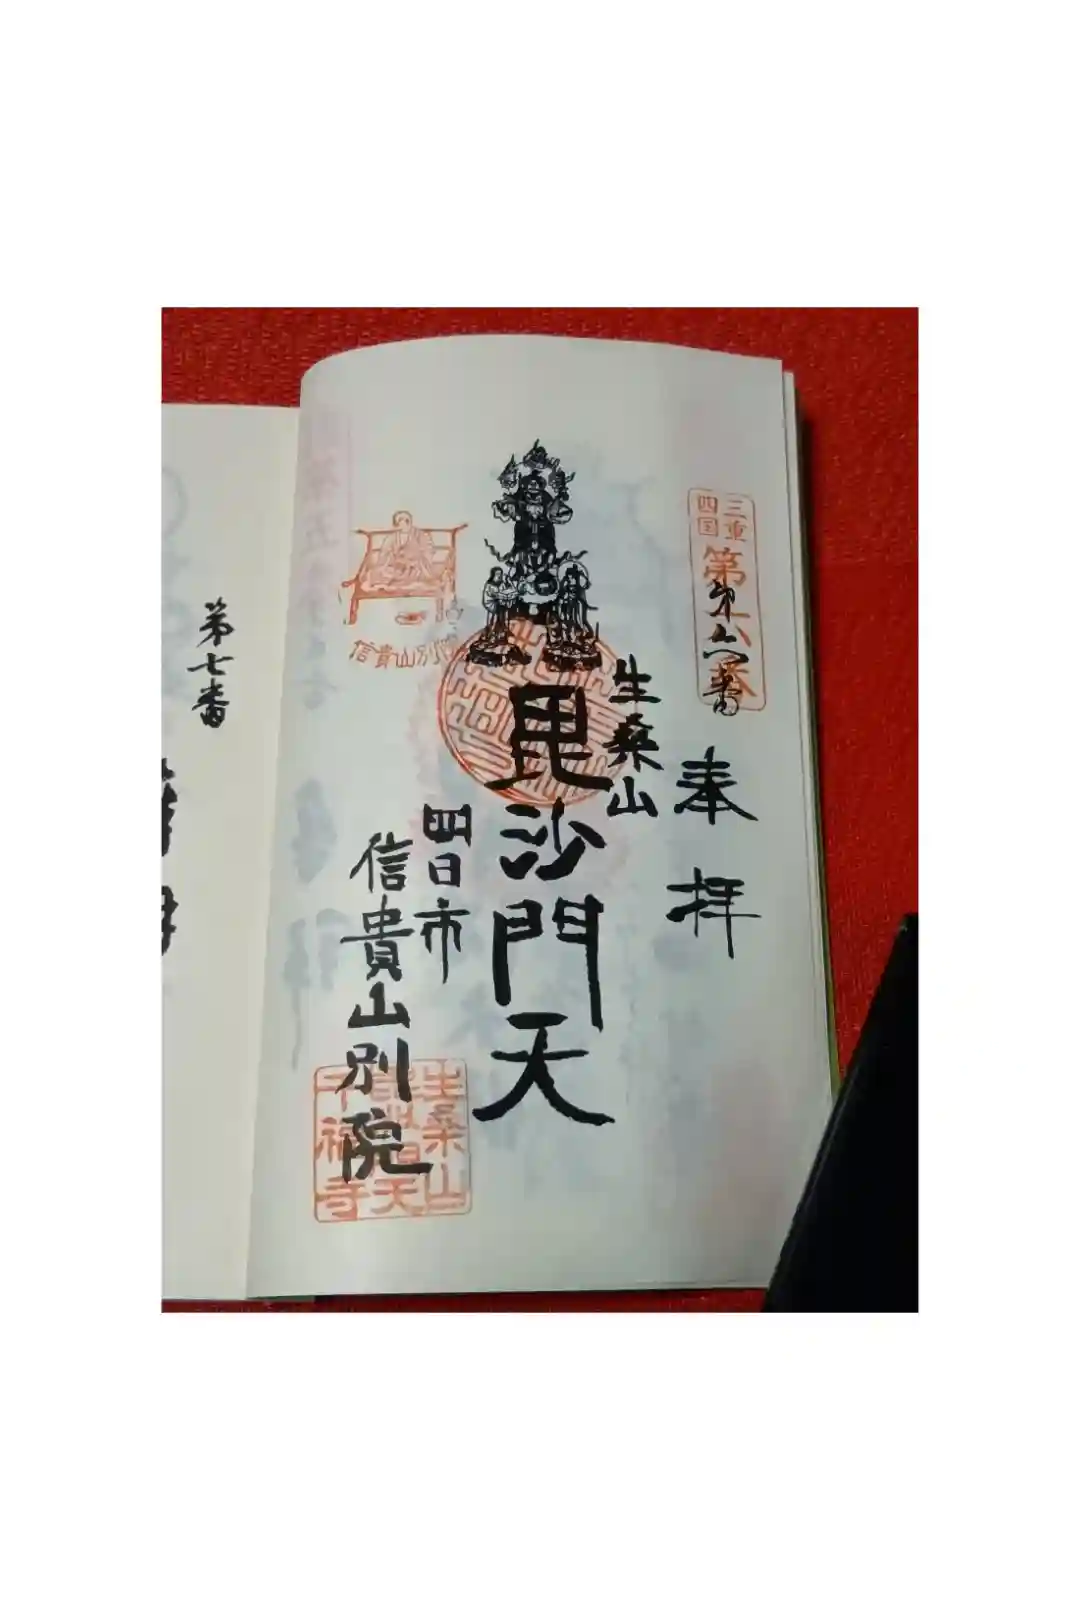 三重
四国
第六番
第六番
奉拝
生桑山
毘沙門天
四日市
信貴山別院
信貴山別院
生桑山
毘沙門天
千福寺
第七番